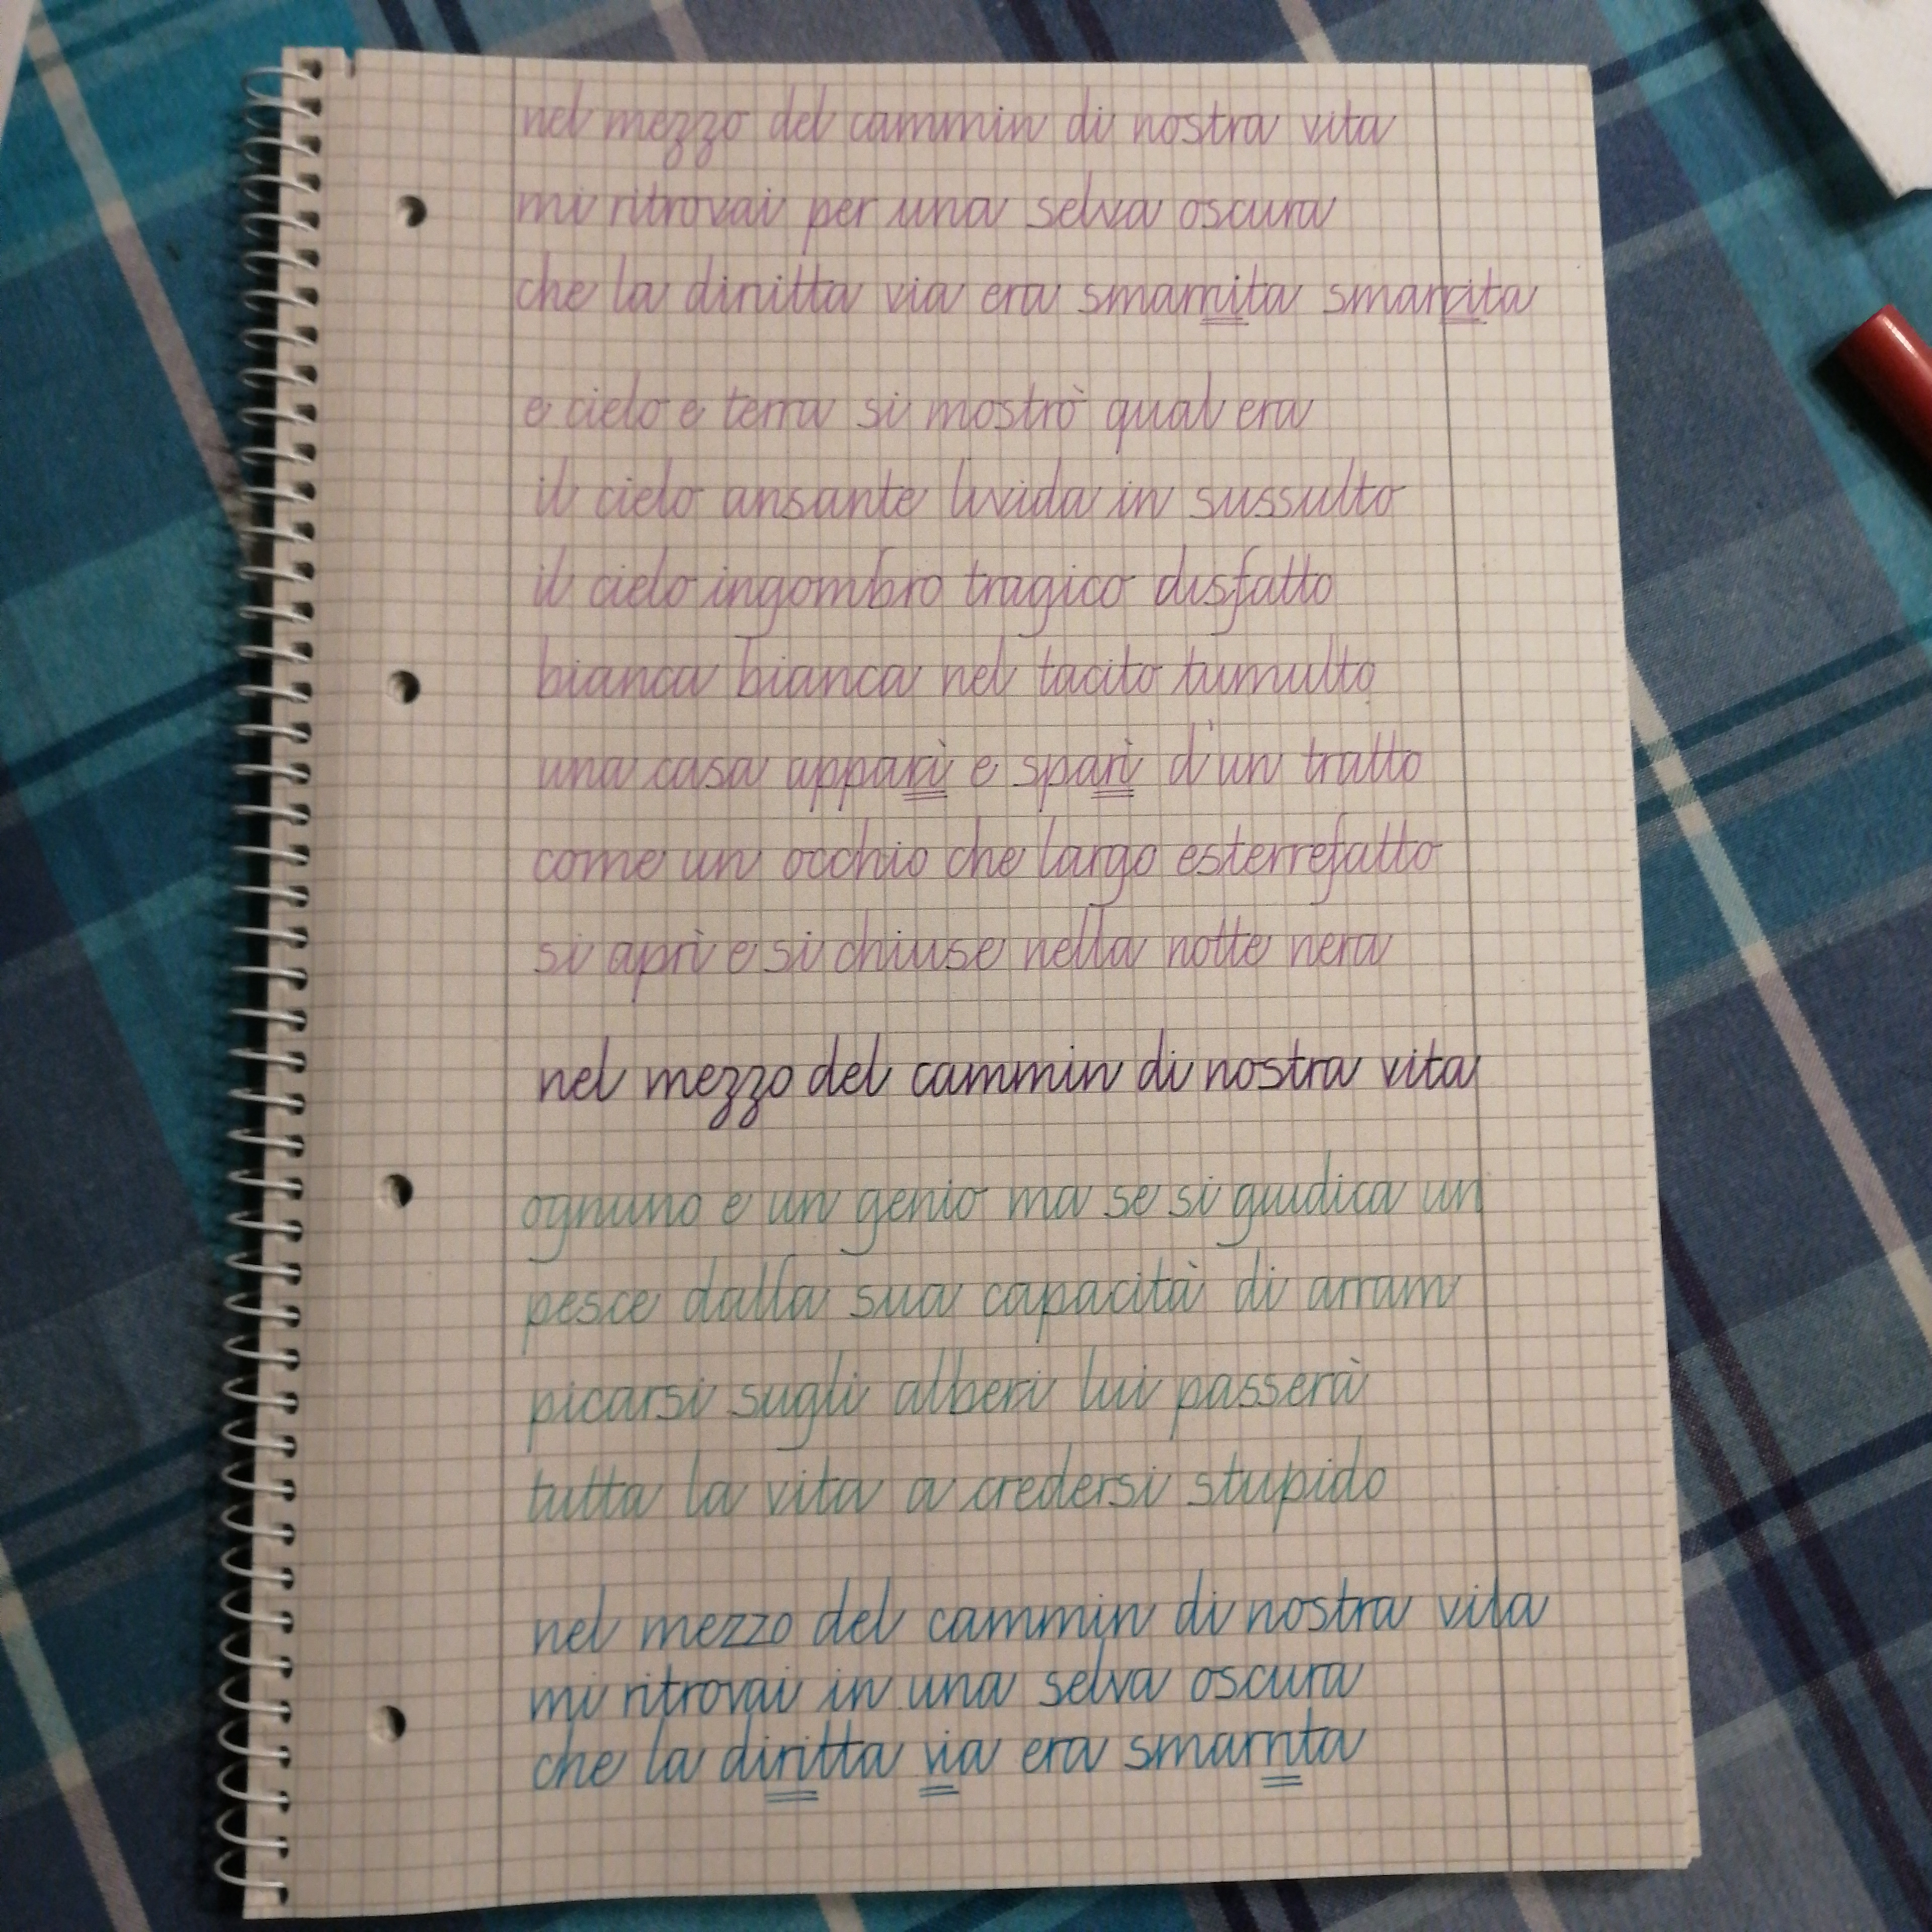 nel mezzo del cammin di nostra vita
mi ritrovai per una selva oscura
che la diritta via era smarrita smarrita
e cielo e terra si mostrò qual era
il cielo ansante livida in sussulto
il cielo ingombro tragico disfatto
bianca bianca nel tacito tumulto
una casa apparì e sparì d'un tratto
come un occhio che largo esterrefatto
si aprì e si chiuse nella notte nera
nel mezzo del cammin di nostra vita
ognuno e un genio ma se si giudica un
pesce dalla sua capacità di arram
picarsi sugli alberi lui passerà
tutta la vita a credersi stupido
nel mezzo del cammin di nostra vita
mi ritrovai in una selva oscura
che la diritta via era smarrita